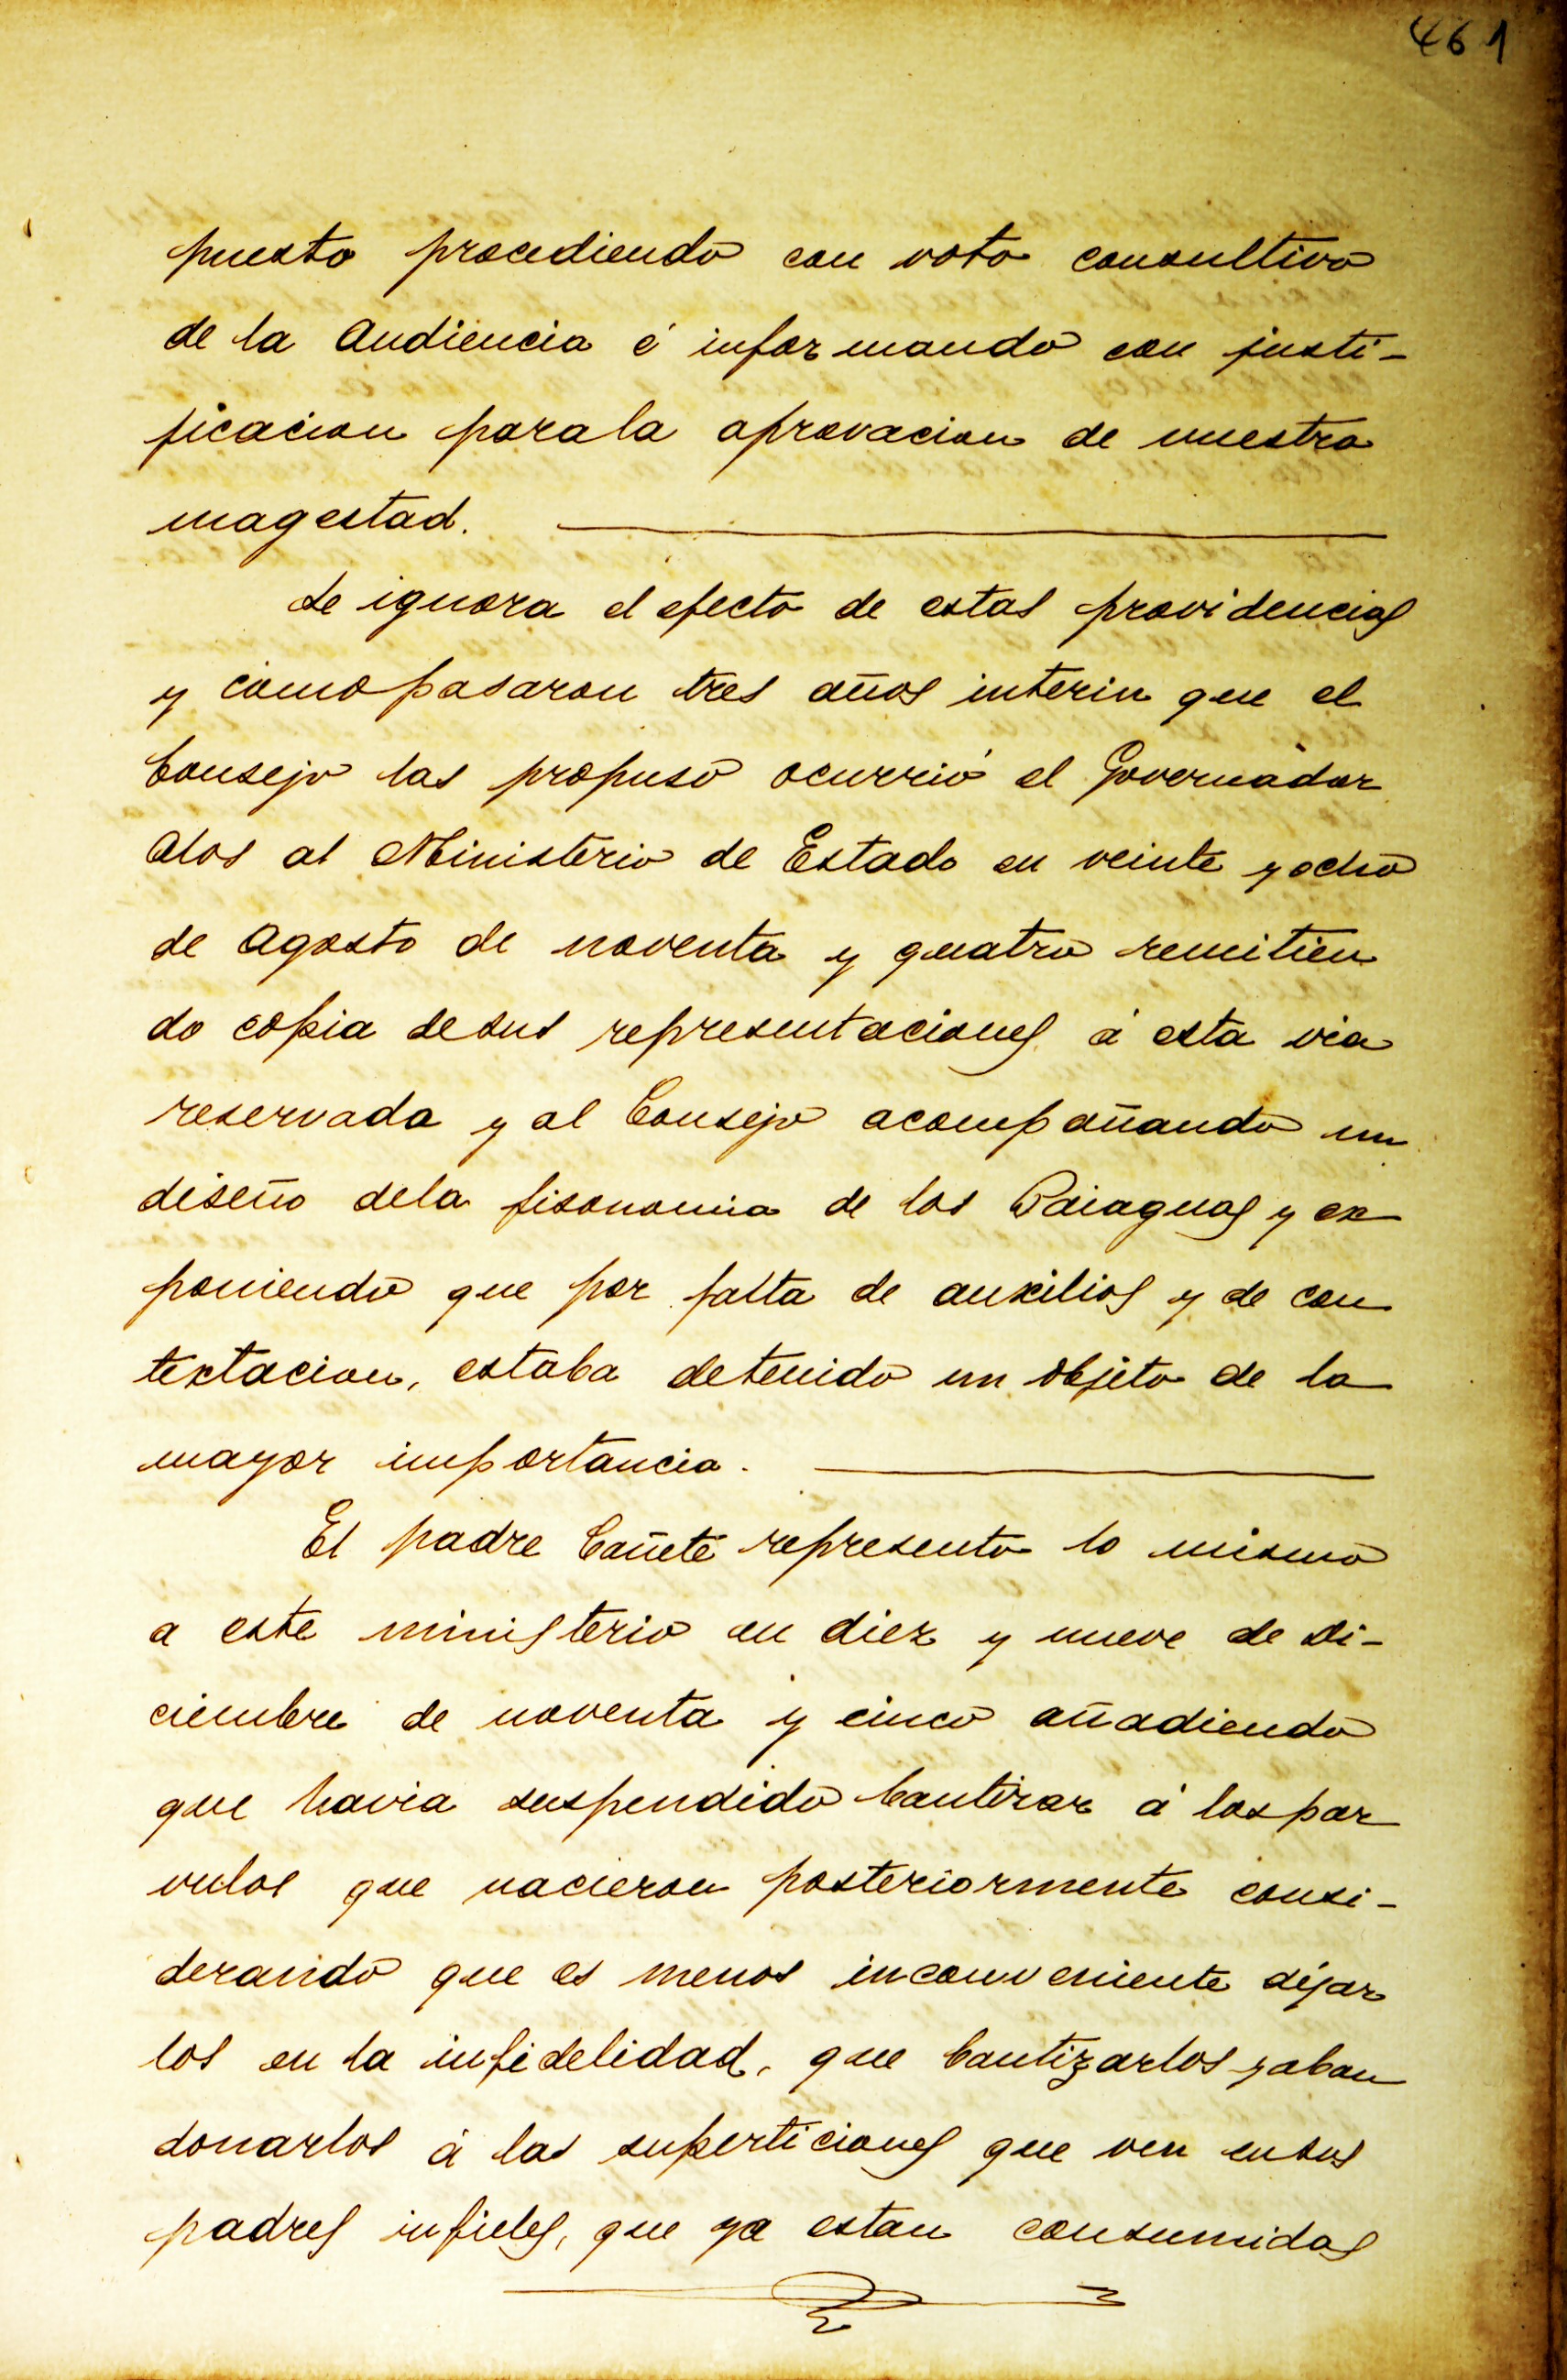 461
puesto procediendo con voto consultivo
de la Audiencia é informando con justi-
ficacion parala aprovacion de nuestra
magestad.
Se ignora el efecto de estas providencias
y como pasaron tres años interin que el
Consejo las propuso ocurrió el Governador
Alos al Ministerio de Estado en veinte yocho
de Agosto de noventa y quatro remitien
do copia desus representaciones á esta via
reservada y al Consejo acompañando un
diseño dela fisonomia de los Paiaguas y ex
poniendo que por falta de auxilios y de con
textacion, estaba detenido un objeto de la
mayor importancia.
El padre Cañete representó lo mismo
a este ministerio en diez y nueve de Di-
ciembre de noventa y cinco añadiendo
que havia suspendido bautizar á los par
vulos que nacieron posteriormente consi-
derando que es menos inconveniente dejar
los en la infidelidad, que bautizarlos yaban
donarlos á las superticiones que ven ensus
padres infieles, que ya estan consumidos